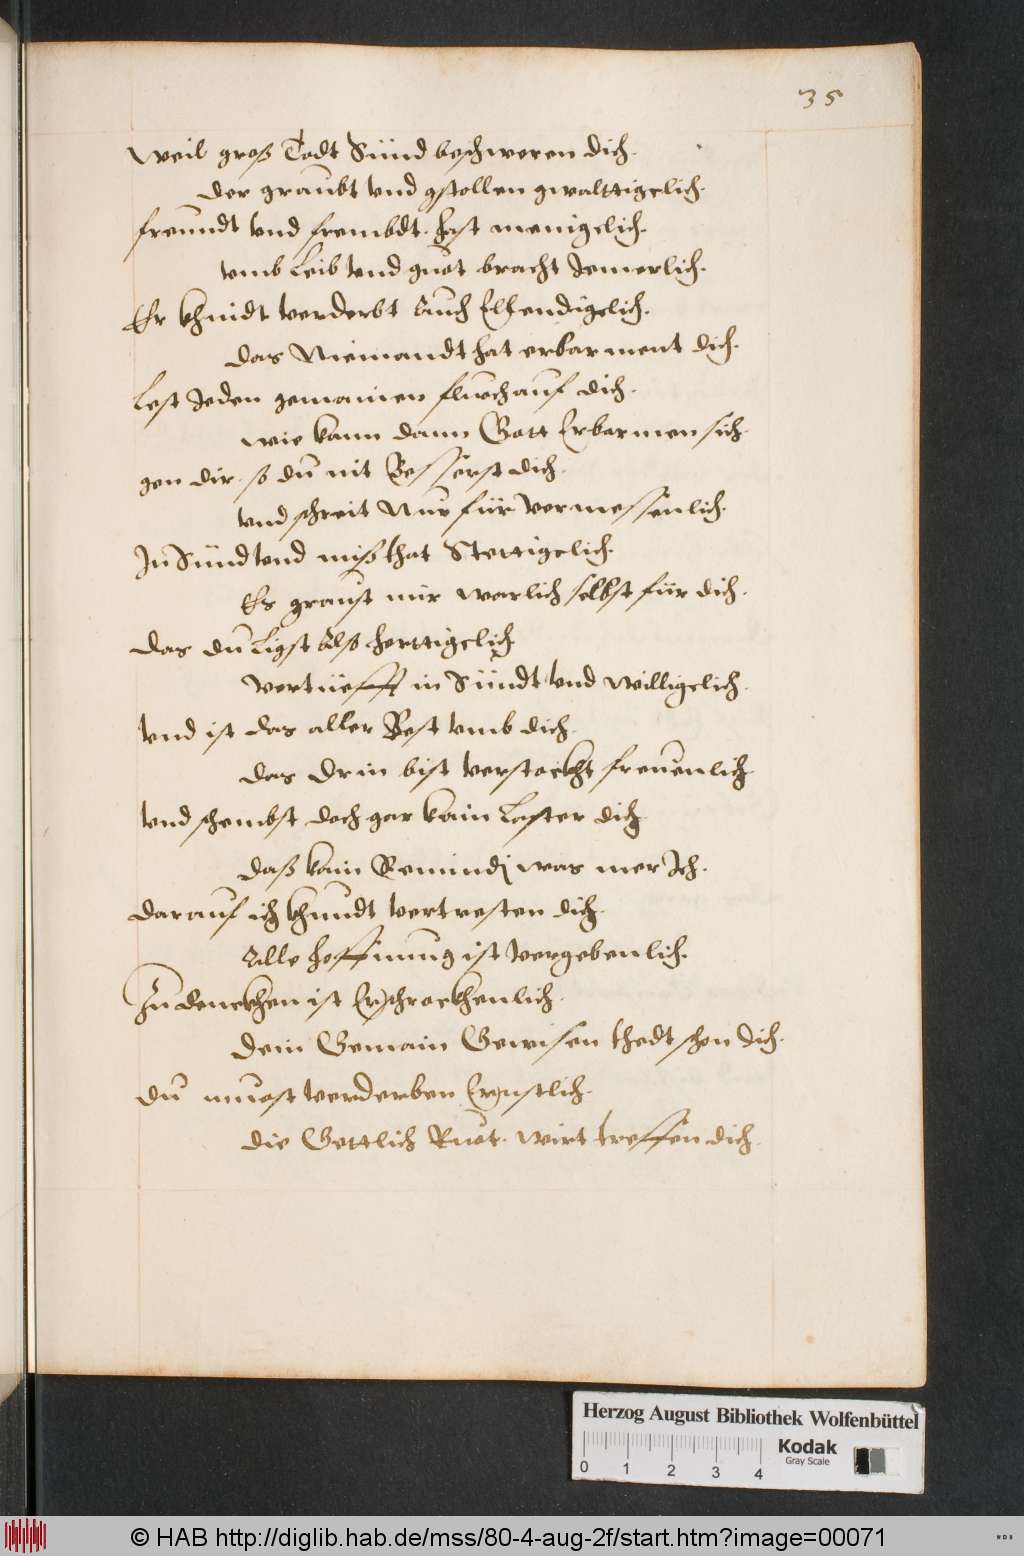 35
Weil groß Todt Sünd beschweren dich.
der graubt vnd gstollen gwalttigclich.
freundt vnd frembdt. hast menigclich.
vmb Leib vnd guot bracht Jemerlich.
Er khindt verderbt Auch Ellendigclich.
das Niemandt hat erbarment dich.
Lest Jeden gemainen fluoch auf dich.
wie kann dann Gott Erbarmen sich.
gen dir. so du nit Besserst dich.
vnd schreit Nur für vermessenlich.
In Sünd vnd mißthat Stettigclich.
Es graust mir warlich selbst für dich.
das du Ligst Also herttigclich
vertüefft in Sündt vnd willigclich.
vnd ist das aller Best vmb dich.
das drin bist verstockht freuenlich
vnd schembst doch gar kain Laster dich
daß kain was mer Ich.
darauf ich khundt vertresten dich.
Alle hoffnung ist vergebenlich.
Zu denckhen ist Erschrockhenlich.
dein Gemain Gewisen thedt schon dich.
du muost verderben Ernstlich.
die Gettlich Ruot. wirt treffen dich.
Herzog August Bibliothek Wolfenbüttel
0 1 2 3 4
Kodak
Gray Scale
© HAB http://diglib.hab.de/mss/80-4-aug-2f/start.htm?image=00071